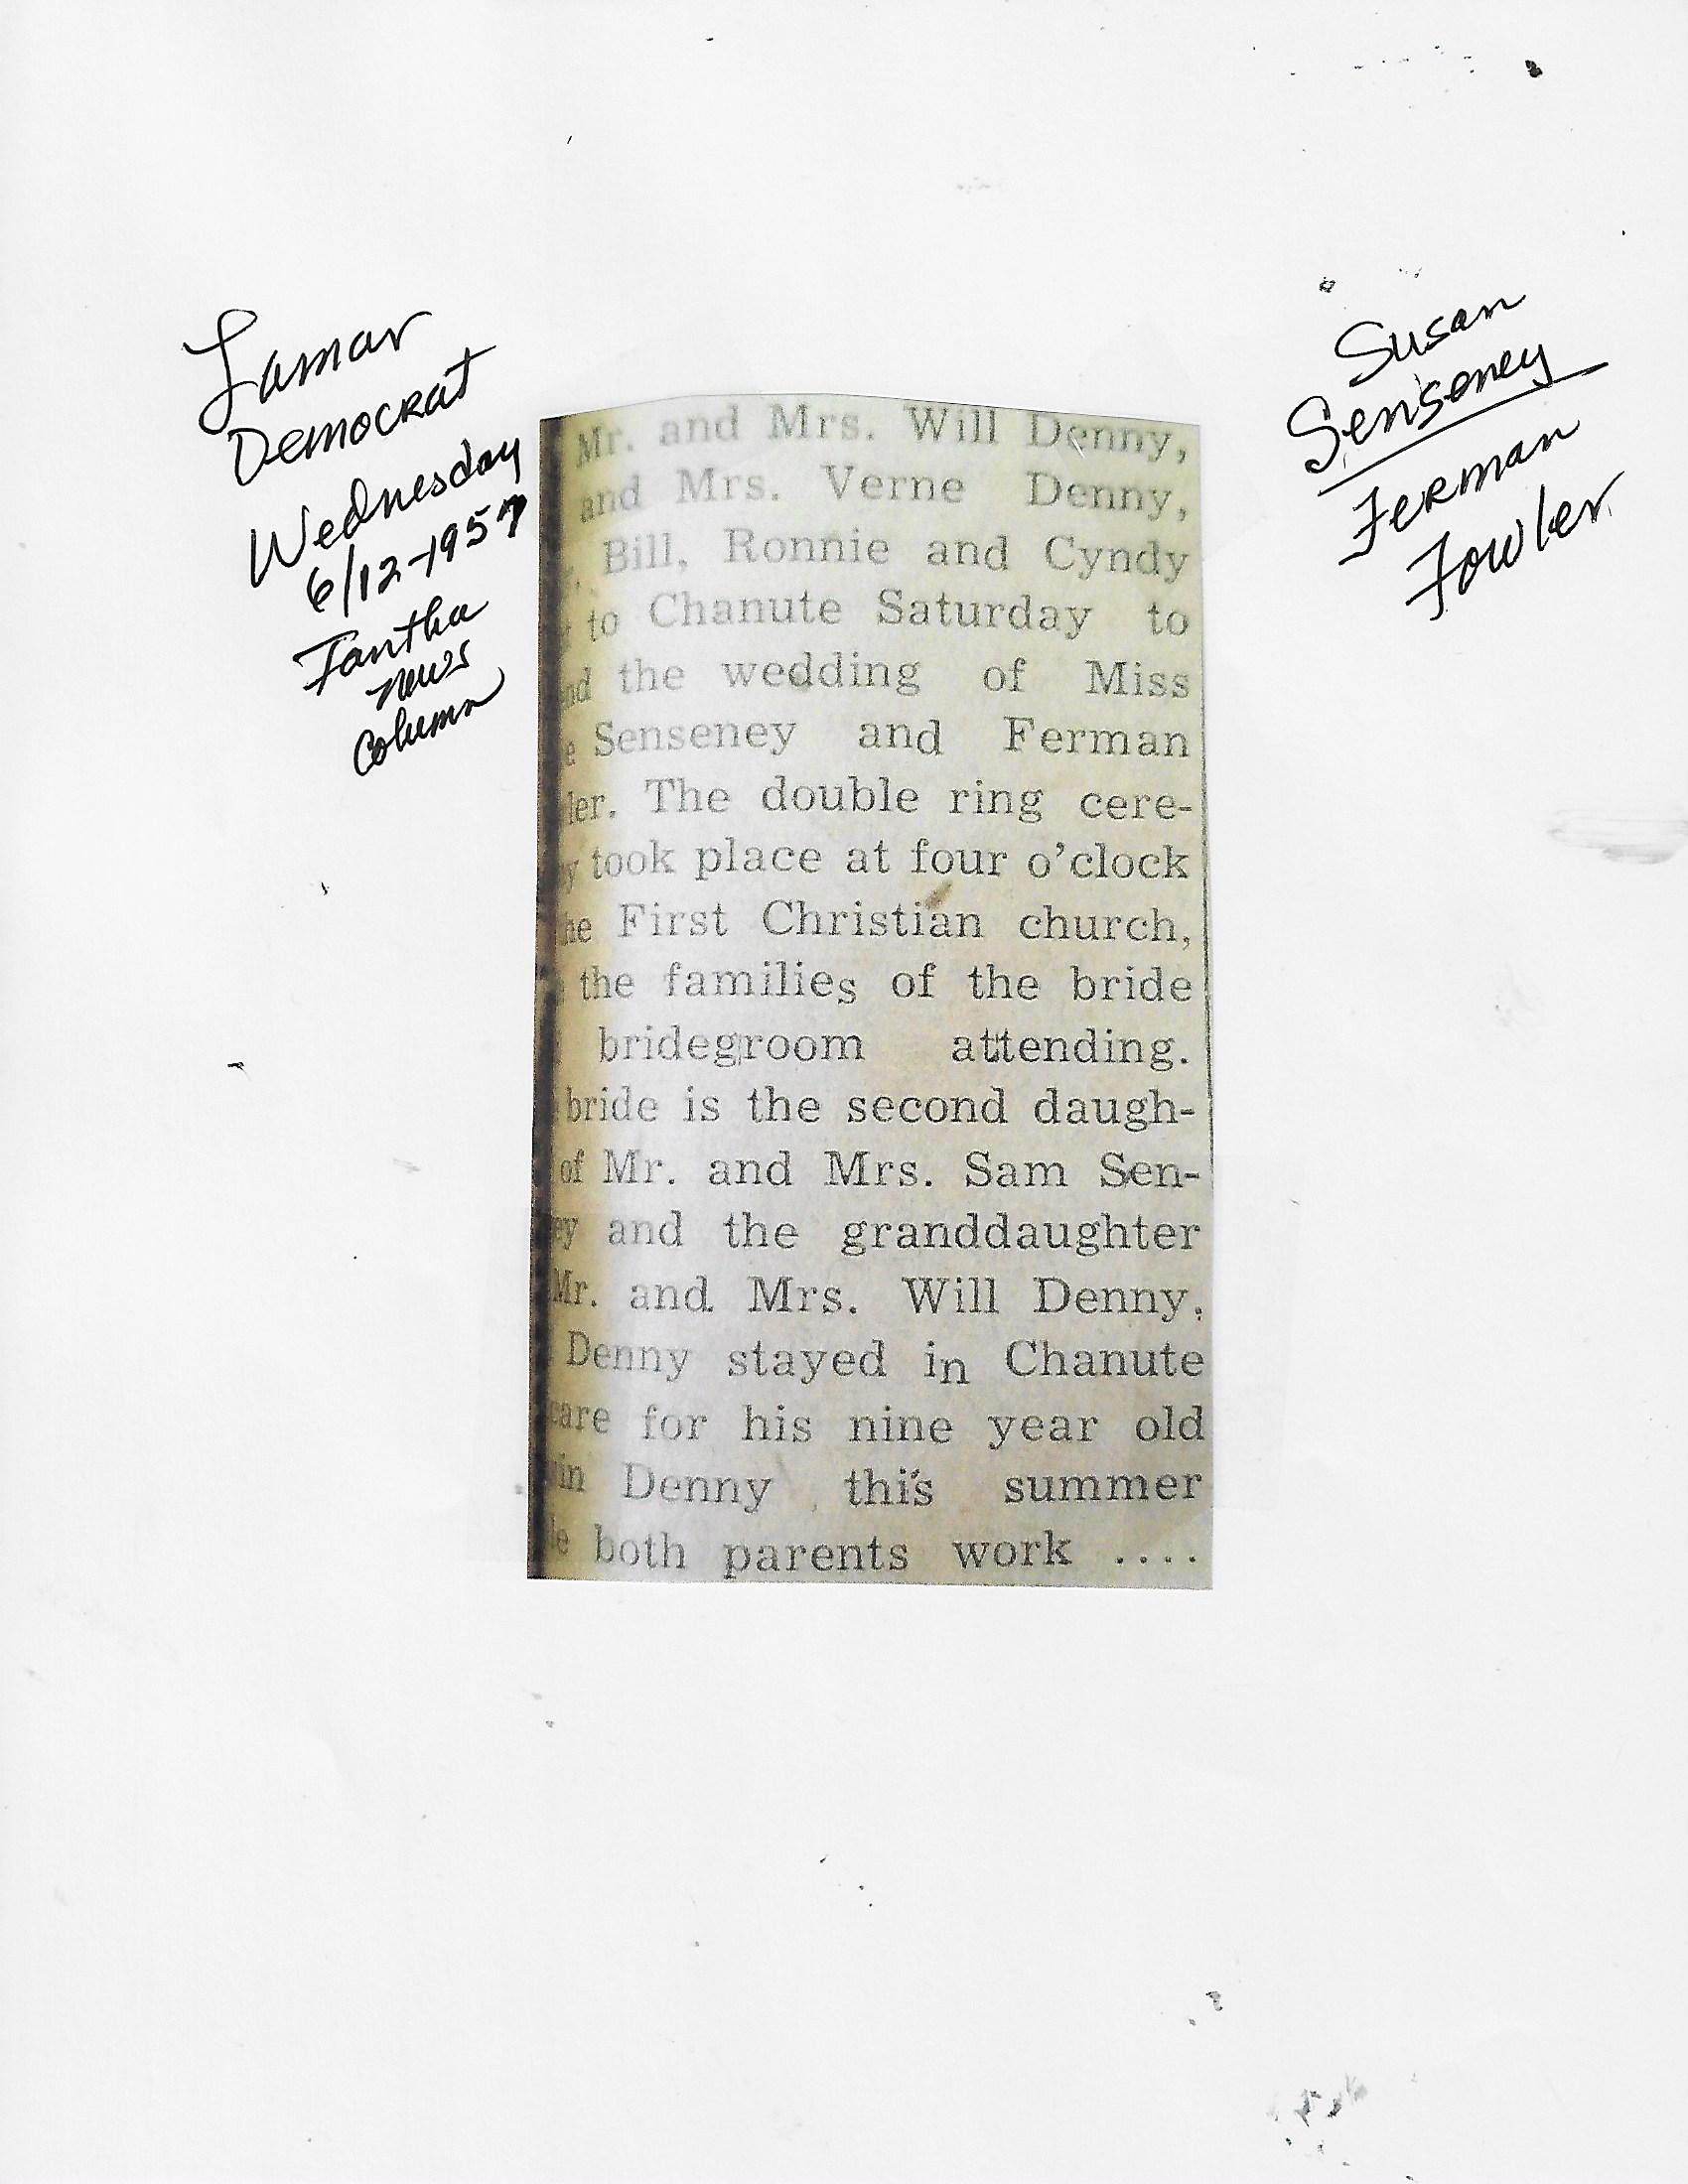 Lamar
Democrat
Wednesday
6/12-1957
Iantha
news
Column
Susan
Senseney
Ferman
Fowler
Mr. and Mrs. Will Denny,
and Mrs. Verne Denny,
Bill, Ronnie and Cyndy
to Chanute Saturday to
nd the wedding of Miss
e Senseney and Ferman
ler. The double ring cere-
y took place at four o'clock
he First Christian church,
the families of the bride
bridegroom attending.
bride is the second daugh-
of Mr. and Mrs. Sam Sen-
ey and the granddaughter
Mr. and Mrs. Will Denny.
Denny stayed in Chanute
care for his nine year old
in Denny this summer
le both parents work ....